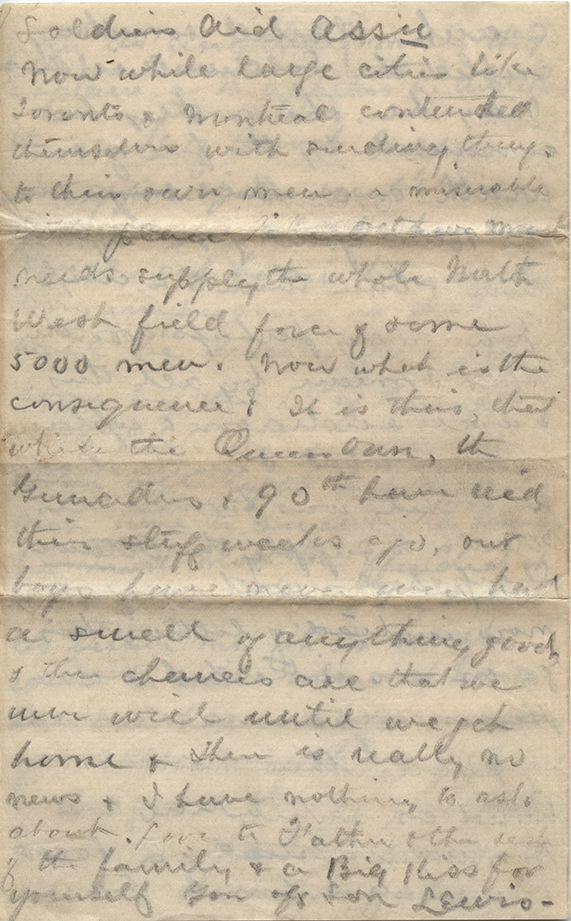 Soldiers Aid Assn
Now while large cities like
Toronto & Montreal contented
themselves with sending things
to their own men a miserable
little place like Ottawa must
needs supply the whole North
West field force of some
5000 men. Now what is the
consequence? It is this, that
while the Queens Own, the
Grenadiers & 90th have recd
their stuff weeks ago, our
boys have never even had
a smell of anything good,
& the chances are that we
never will until we get
home & there is really no
news & I have nothing to ask
about. Love to Father & the rest
of the family & a Big Kiss for
yourself Yon aff Son Lewis-